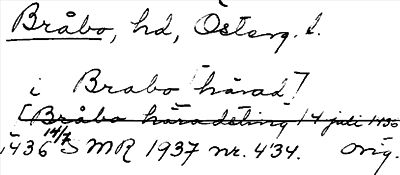 Bråbo, hd, Österg. l.
i Brabo [härad]
[Bråbo häradsting 14 juli 1436
1436 14/7 SMR 1937 nr. 434. Orig.